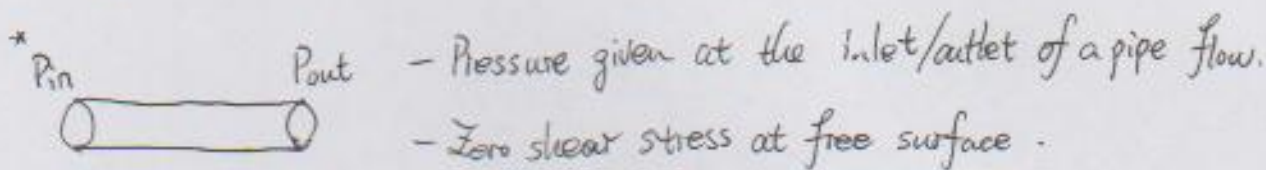 * Pin Pout - Pressure given at the inlet/outlet of a pipe flow.
- Zero shear stress at free surface.